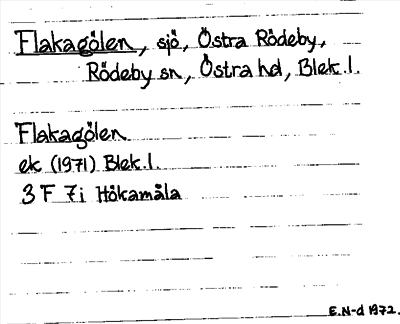 Flakagölen, sjö, Östra Rödeby,
Rödeby sn, Östra hd, Blek.l.
Flakagölen
ek (1971) Blek.l.
3 F 7i Hökamåla
E.N-d 1972.